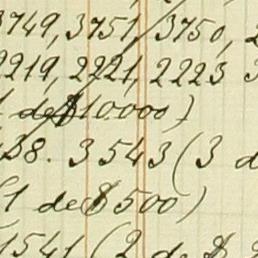 3749, 3751, 3750, 2
2219, 2221, 2223 3
de $10000)
38. 3543 (3 d
(1 de $500)
1541 (2 de $